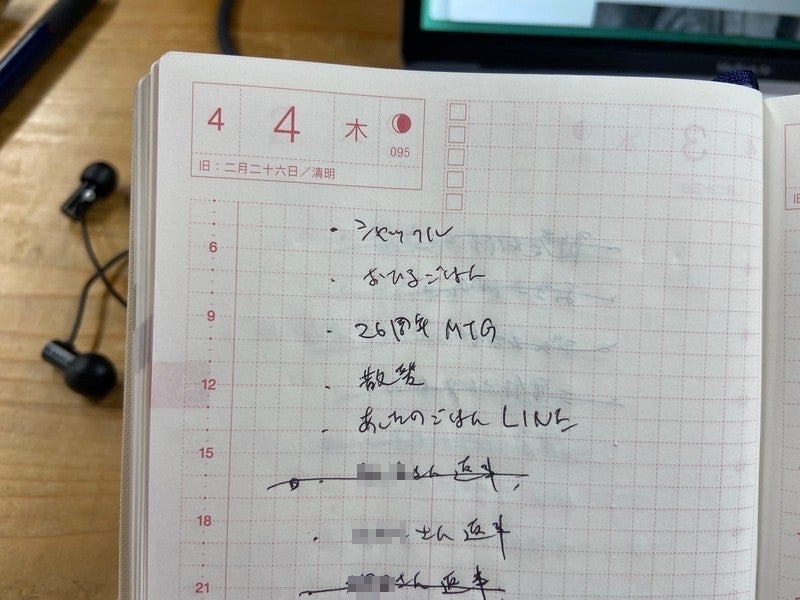 4 4 木 095
旧：二月二十六日／清明
・シャッフル
・おひるごはん
・26周年 MTG
・散髪
・あしたのごはん LINE
・さん 返事
・さん 返事
・さん 返事
6
9
12
15
18
21